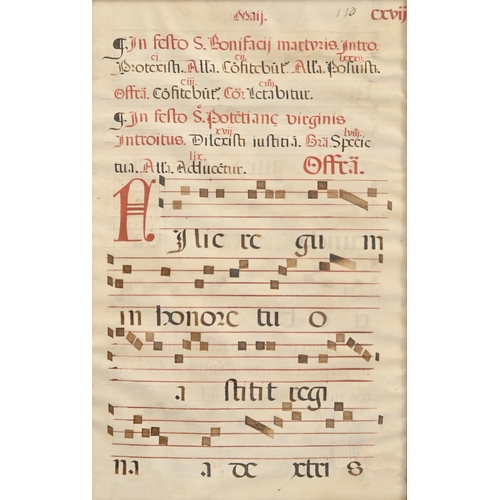 Maij. 110 cxvij
¶ In festo S. Bonifacij martyris. Intro.
cj. lxxxij
Protexisti. Alla. Cōfitebūt. Alla. Posuisti.
ciij. ciiij
Offrā. Cōfitebūt. Cō: Letabitur.
¶ In festo S. Potētianę virginis
xvij lviij.
Introitus. Dilexisti iustitiā. Grā. Specie
lix.
tua. Alla. Adducētur. Offrā.
Filie re gum
in honore tu o
a stitit regi
na a de xtris